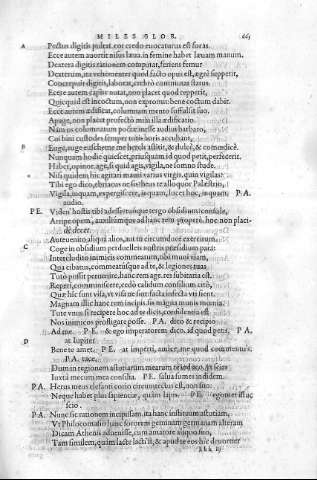 MILES GLOR. 663
A Pectus digitis pultat. cor credo euocaturus est foras.
Ecce autem auortit nisus læua. in femine habet læuam manum,
Dextera digitis rationem computat, feriens femur
Dexterum, ita vehementer quod facto opus est, ægre suppetit,
Concrepuit digitis, laborat. crebro commutat status
Eccere autem capite nutat, non placet quod repperit,
Quicquid est incoctum, non expromet. bene coctum dabit.
Ecce autem ædificat, columnam mento suffulsit suo.
Apage, non placet profecto mihi illa ædificatio.
Nam os columnatum poëtæ inesse audiui barbaro,
Coi bini custodes semper totis horis accubant,
B Euge, euge euscheme me hercle astitit, & dulicè, & comœdicè.
Nunquam hodie quiescet, priusquam id quod petit, perfecerit.
Habet, opinor. age, si quid agis, vigila, ne somno stude.
Nisi quidem hic agitari mauis varius virgis, quin vigilas?
Tibi ego dico,
Vigila, inquam, expergiscere, inquam, lucet hoc, inquam. PA.
audio.
PE. Viden' hostis tibi adesse, tuoque tergo obsidium? consule,
Arripe opem, auxiliumque ad hanc rem propere. hoc non placide decet.
Anteuenito aliqua alios, aut tu circumduce exercitum.
C Coge in obsidium perduelles nostris præsidium para:
Intercludito inimicis commeatum, tibi muni viam,
Qua cibatus, commeatusque ad te, & legiones tuas
Tuto possit peruenire, hanc rem age. res subitaria est.
Reperi, comminiscere, cedò calidum consilium citò,
Quæ hic sunt visa, vt visa ne sint facta infecta vti sient.
Magnam illic hanc rem incipit, magna munit mœnia:
Tute vnus si recipere hoc ad te dicis, confidentia est
Nos inimicos profligare posse. PA. dico & recipio
Ad me. PE. & ego impetrare dico. id quod petis. PA.
D at Iupiter
Bene te amet. PE. at imperti, amice, me quod commentus.
PA. tace,
Dum in regionem astutiarum mearum te induco, vt scias
Iuxta mecum mea consilia. PE. salua sumes indidem.
PA. Herus meus elefanti corio circumtectus est, non suo:
Neque habet plus sapientiæ, quàm lapis. PE. ego me istuc
scio.
PA. Nunc sic rationem incipissam. ita hanc instituam astutiam,
Vt Philocomasio hanc sororem geminam germanam alteram
Dicam Athenis aduenisse, cum amatore aliquo suo,
Tam similem, quàm lacte lacti est, & apud te eos hic deuortier